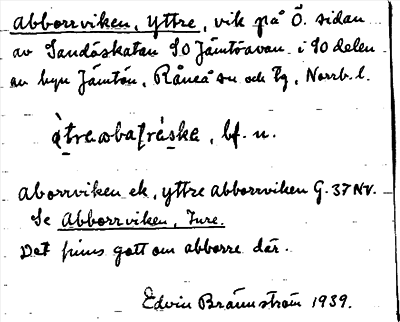 Abborrviken, Yttre, vik på Ö. sidan
av Sandöskatan SO Jämtöavan i SO delen
av byn Jämtön, Råneå sn och tg, Norrb. l.
bf. n.
Aborrviken ek, yttre abborrviken G. 37 NV.
Se Abborrviken, Inre.
Det finns gott om abborre där.
Edvin Brännström 1939.